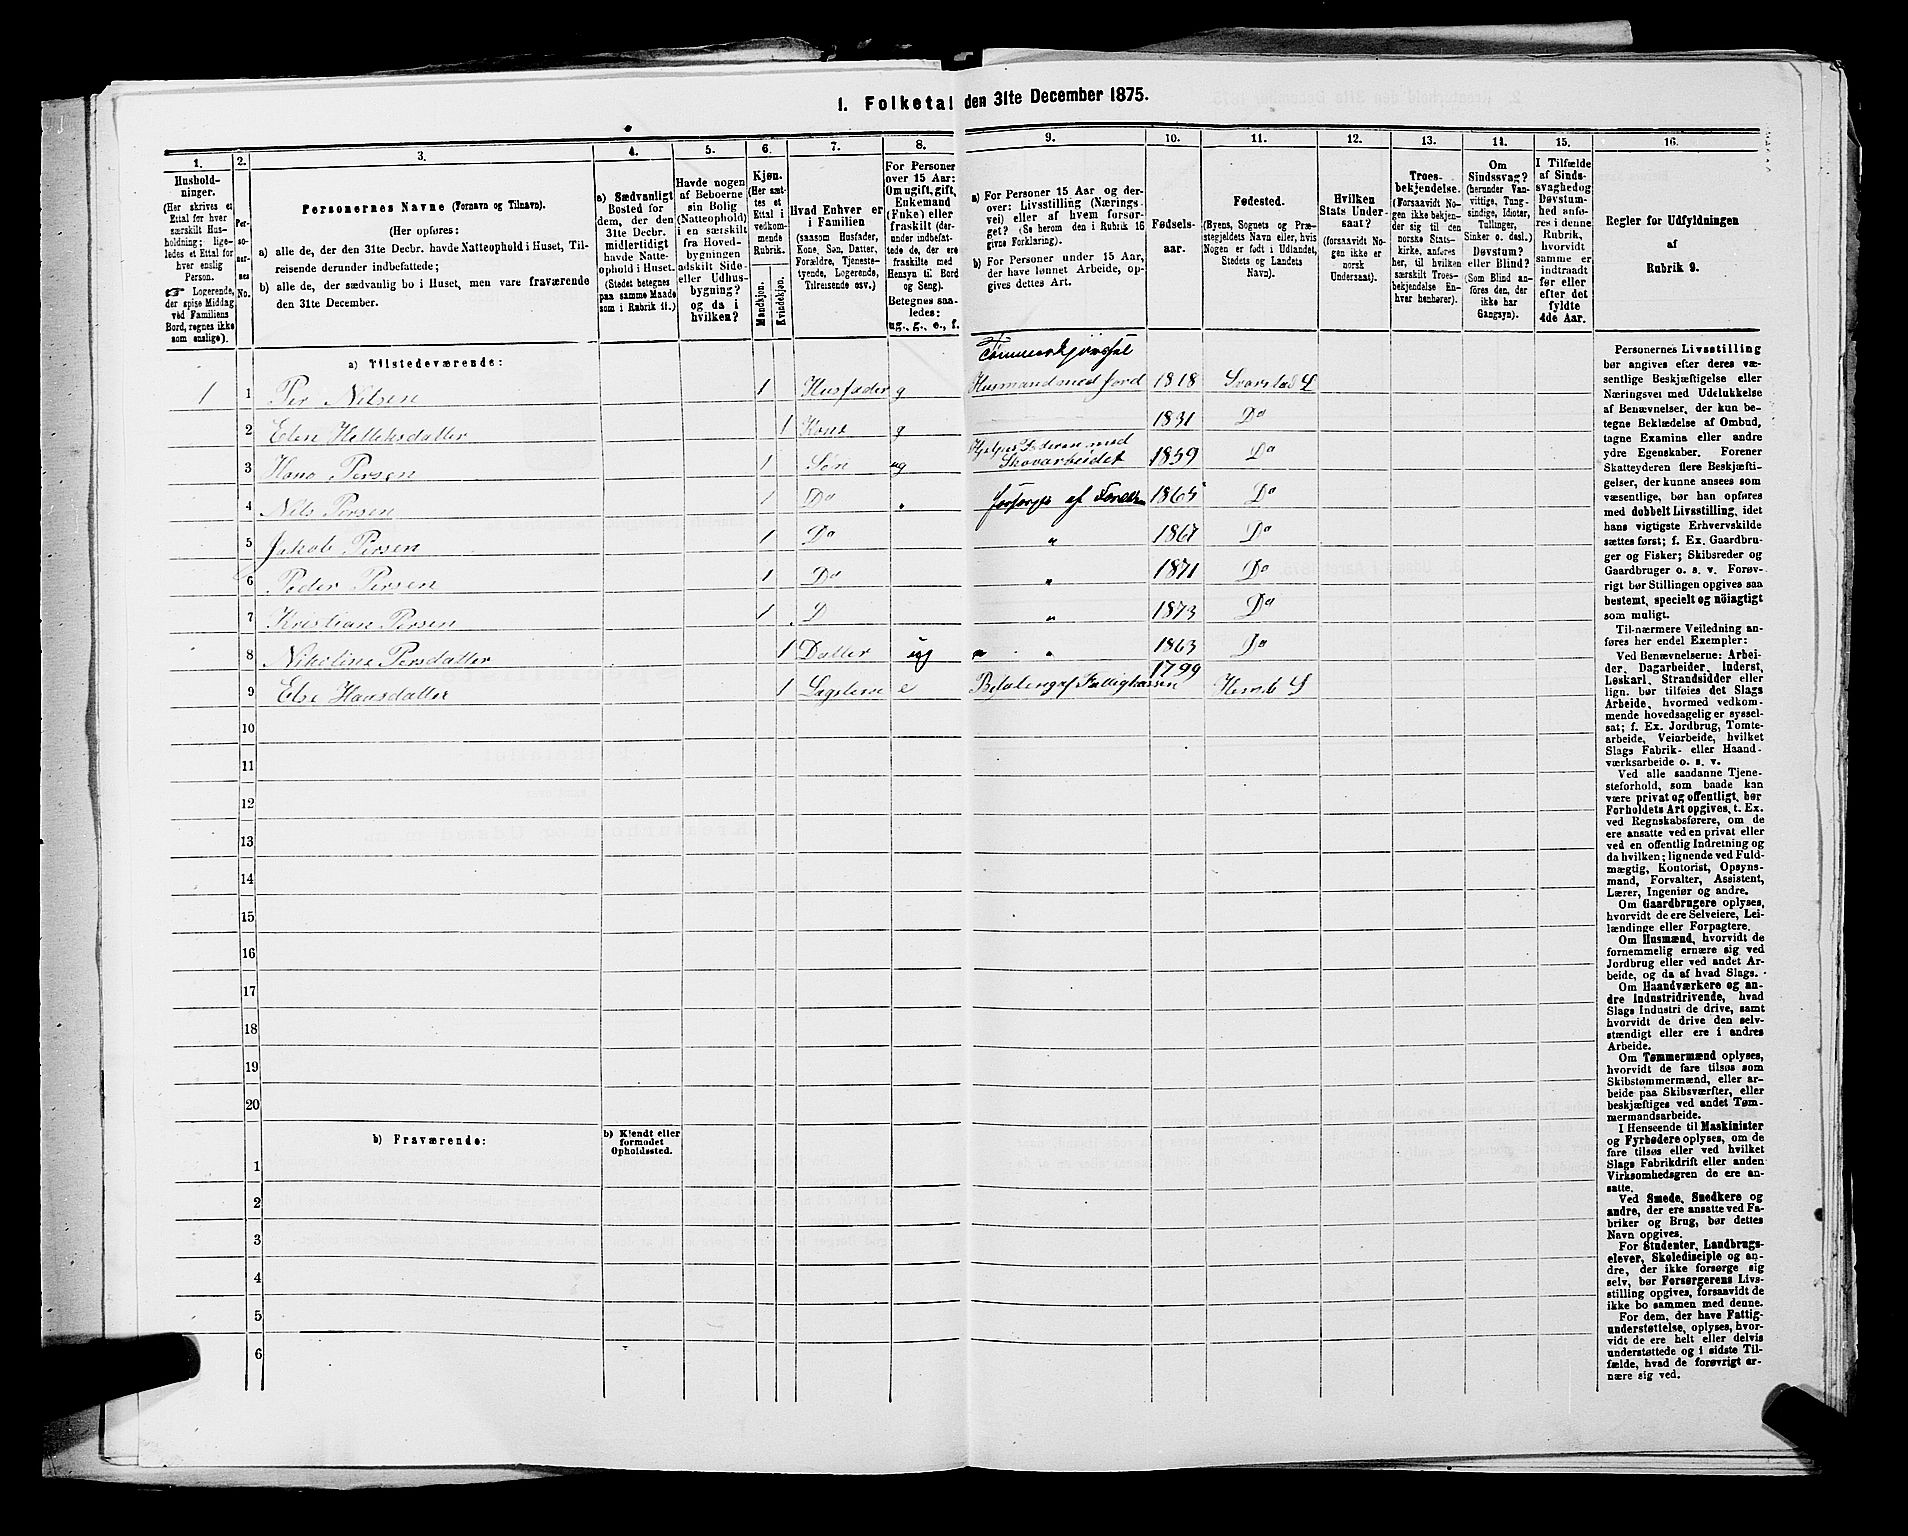 1. Folketal den 31te December 1875.
1.
2.
3.
4.
5.
6.
7.
8.
9.
10.
11.
12.
13.
14.
15.
16.
Hushold-
ninger.
(Her skrives et
Ettal for hver
særskilt Hus-
holdning; lige-
ledes et Ettal for
hver enslig
Person.
☞ Logerende,
der spise Middag
ved Familiens
Bord, regnes ikke
som enslige).
Per-
so-
ner-
nes
No.
Personernes Navne (Fornavn og Tilnavn).
(Her opføres:
a) alle de, der den 31te Decbr. havde Natteophold i Huset, Til-
reisende derunder indbefattede;
b) alle de, der sædvanlig bo i Huset, men vare fraværende
den 31te December.
a) Sædvanligt
Bosted for
dem, der den
31te Decbr.
midlertidigt
havde Natte-
ophold i Huset.
(Stedet betegnes
paa samme Maade
som i Rubrik 11.)
Havde nogen
af Beboerne
sin Bolig
(Natteophold)
i en særskilt
fra Hoved-
bygningen
adskilt Side-
eller Udhus-
bygning?
og da i
hvilken?
Kjøn.
(Her sæt-
tes et
Ettal i
vedkom-
mende
Rubrik.
Mandkjøn.
Kvindekjøn.
Hvad Enhver er
i Familien
(saasom Husfader,
Kone, Søn, Datter,
Forældre, Tjeneste-
tyende, Logerende,
Tilreisende osv.)
For Personer
over 15 Aar:
Om ugift, gift,
Enkemand
(Enke) eller
fraskilt (der-
under indbefat-
tede de, der ere
fraskilte med
Hensyn til Bord
og Seng).
Betegnes saa-
ledes:
ug., g., e., f.
a) For Personer 15 Aar og der-
over: Livsstilling (Nærings-
vei) eller af hvem forsør-
get? (Se herom den i Rubrik 16
givne Forklaring).
b) For Personer under 15 Aar,
der have lønnet Arbeide, op-
gives dettes Art.
Fødsels-
aar.
Fødested.
(Byens, Sognets og Præ-
stegjeldets Navn eller, hvis
Nogen er født i Udlandet,
Stedets og Landets
Navn).
Hvilken
Stats Under-
saat?
(forsaavidt No-
gen ikke er
norsk
Undersaat).
Troes-
bekjendelse.
(Forsaavidt No-
gen ikke bekjen-
der sig til den
norske Stats-
kirke, anføres
her, til hvilken
særskilt Troes-
bekjendelse En-
hver henhører).
Om
Sindssvag?
(herunder Van-
vittige, Tung-
sindige, Idioter,
Tullinger,
Sinker o. desl.)
Døvstum?
eller Blind?
(Som Blind an-
føres den, der
ikke har
Gangsyn).
I Tilfælde
af Sinds-
svaghed og
Døvstum-
hed anfø-
res i denne
Rubrik,
hvorvidt
samme er
indtraadt
før eller
efter det
fyldte
4de Aar.
Regler for Udfyldningen
af
Rubrik 9.
a) Tilstedeværende:
Tømmerkjørsel
1 1 Per Nilsen 1 Husfader g Husmand med Jord 1818 Svarstad S
2 Elen Helleksdatter 1 Kone g 1831 Do
3 Hans Persen 1 Søn ug Hjelper Faderen med Skovarbeidet 1859 Do
4 Nils Persen 1 Do forsørges af Foræld 1865 Do
5 Jakob Persen 1 Do " 1867 Do
6 Peder Persen 1 Do " 1871 Do
7 Kristian Persen 1 D " 1873 Do
8 Nikoline Persdatter 1 Datter ug " " 1863 Do
9 Else Hansdatter 1 e af Fattigkassen 1799 S
10
11
12
13
14
15
16
17
18
19
20
b) Fraværende:
b) Kjendt eller
formodet
Opholdssted.
1
2
3
4
5
6
Personernes Livsstilling
bør angives efter deres væ-
sentlige Beskjæftigelse eller
Næringsvei med Udelukkelse
af Benævnelser, der kun be-
tegne Beklædelse af Ombud,
tagne Examina eller andre
ydre Egenskaber. Forener
Skatteyderen flere Beskjæfti-
gelser, der kunne ansees som
væsentlige, bør han opføres
med dobbelt Livsstilling, idet
hans vigtigste Erhvervskilde
sættes først; f. Ex. Gaardbru-
ger og Fisker; Skibsreder og
Gaardbruger o. s. v. Forøv-
rigt bør Stillingen opgives saa
bestemt, specielt og nöiagtigt
som muligt.
Til nærmere Veiledning an-
føres her endel Exempler:
Ved Benævnelserne: Arbei-
der, Dagarbeider, Inderst,
Løskarl, Strandsidder eller
lign. bør tilføies det Slags
Arbeide, hvormed vedkom-
mende hovedsagelig er syssel-
sat; f. Ex. Jordbrug, Tomte-
arbeide, Veiarbeide, hvilket
Slags Fabrik- eller Haand-
værksarbeide o. s. v.
Ved alle saadanne Tjene-
steforhold, som baade kan
være privat og offentligt, bør
Forholdets Art opgives, t. Ex.
ved Regnskabsførere, om de
ere ansatte ved en privat eller
ved en offentlig Indretning og
da hvilken; lignende ved Fuld-
mægtig, Kontorist, Opsyns-
mand, Forvalter, Assistent,
Lærer, Ingeniør og andre.
Om Gaardbrugere oplyses,
hvorvidt de ere Selveiere, Lei-
lændinge eller Forpagtere.
Om Husmænd, hvorvidt de
fornemmelig ernære sig ved
Jordbrug eller ved andet Ar-
beide, og da af hvad Slags.
Om Haandværkere og an-
dre Industridrivende, hvad
Slags Industri de drive, samt
hvorvidt de drive den selv-
stændigt eller ere i andres
Arbeide.
Om Tømmermænd oplyses,
hvorvidt de fare tilsøs som
Skibstømmermænd, eller ar-
beide paa Skibsværfter, eller
beskjæftiges ved andet Tøm-
mermandsarbeide.
I Henseende til Maskinister
og Fyrbødere oplyses, om de
fare tilsøs eller ved hvilket
Slags Fabrikdrift eller anden
Virksomhedsgren de ere an-
satte.
Ved Smede, Snedkere og
andre, der ere ansatte ved Fa-
briker og Brug, bør dettes
Navn opgives.
For Studenter, Landbrugs-
elever, Skoledisciple og an-
dre, der ikke forsørge sig
selv, bør Forsørgerens Livs-
stilling opgives, forsaavidt de
ikke bo sammen med denne.
For dem, der have Fattig-
understøttelse, oplyses, hvor-
vidt de ere helt eller delvis
understøttede og i sidste Til-
fælde, hvad de forøvrigt er-
nære sig ved.